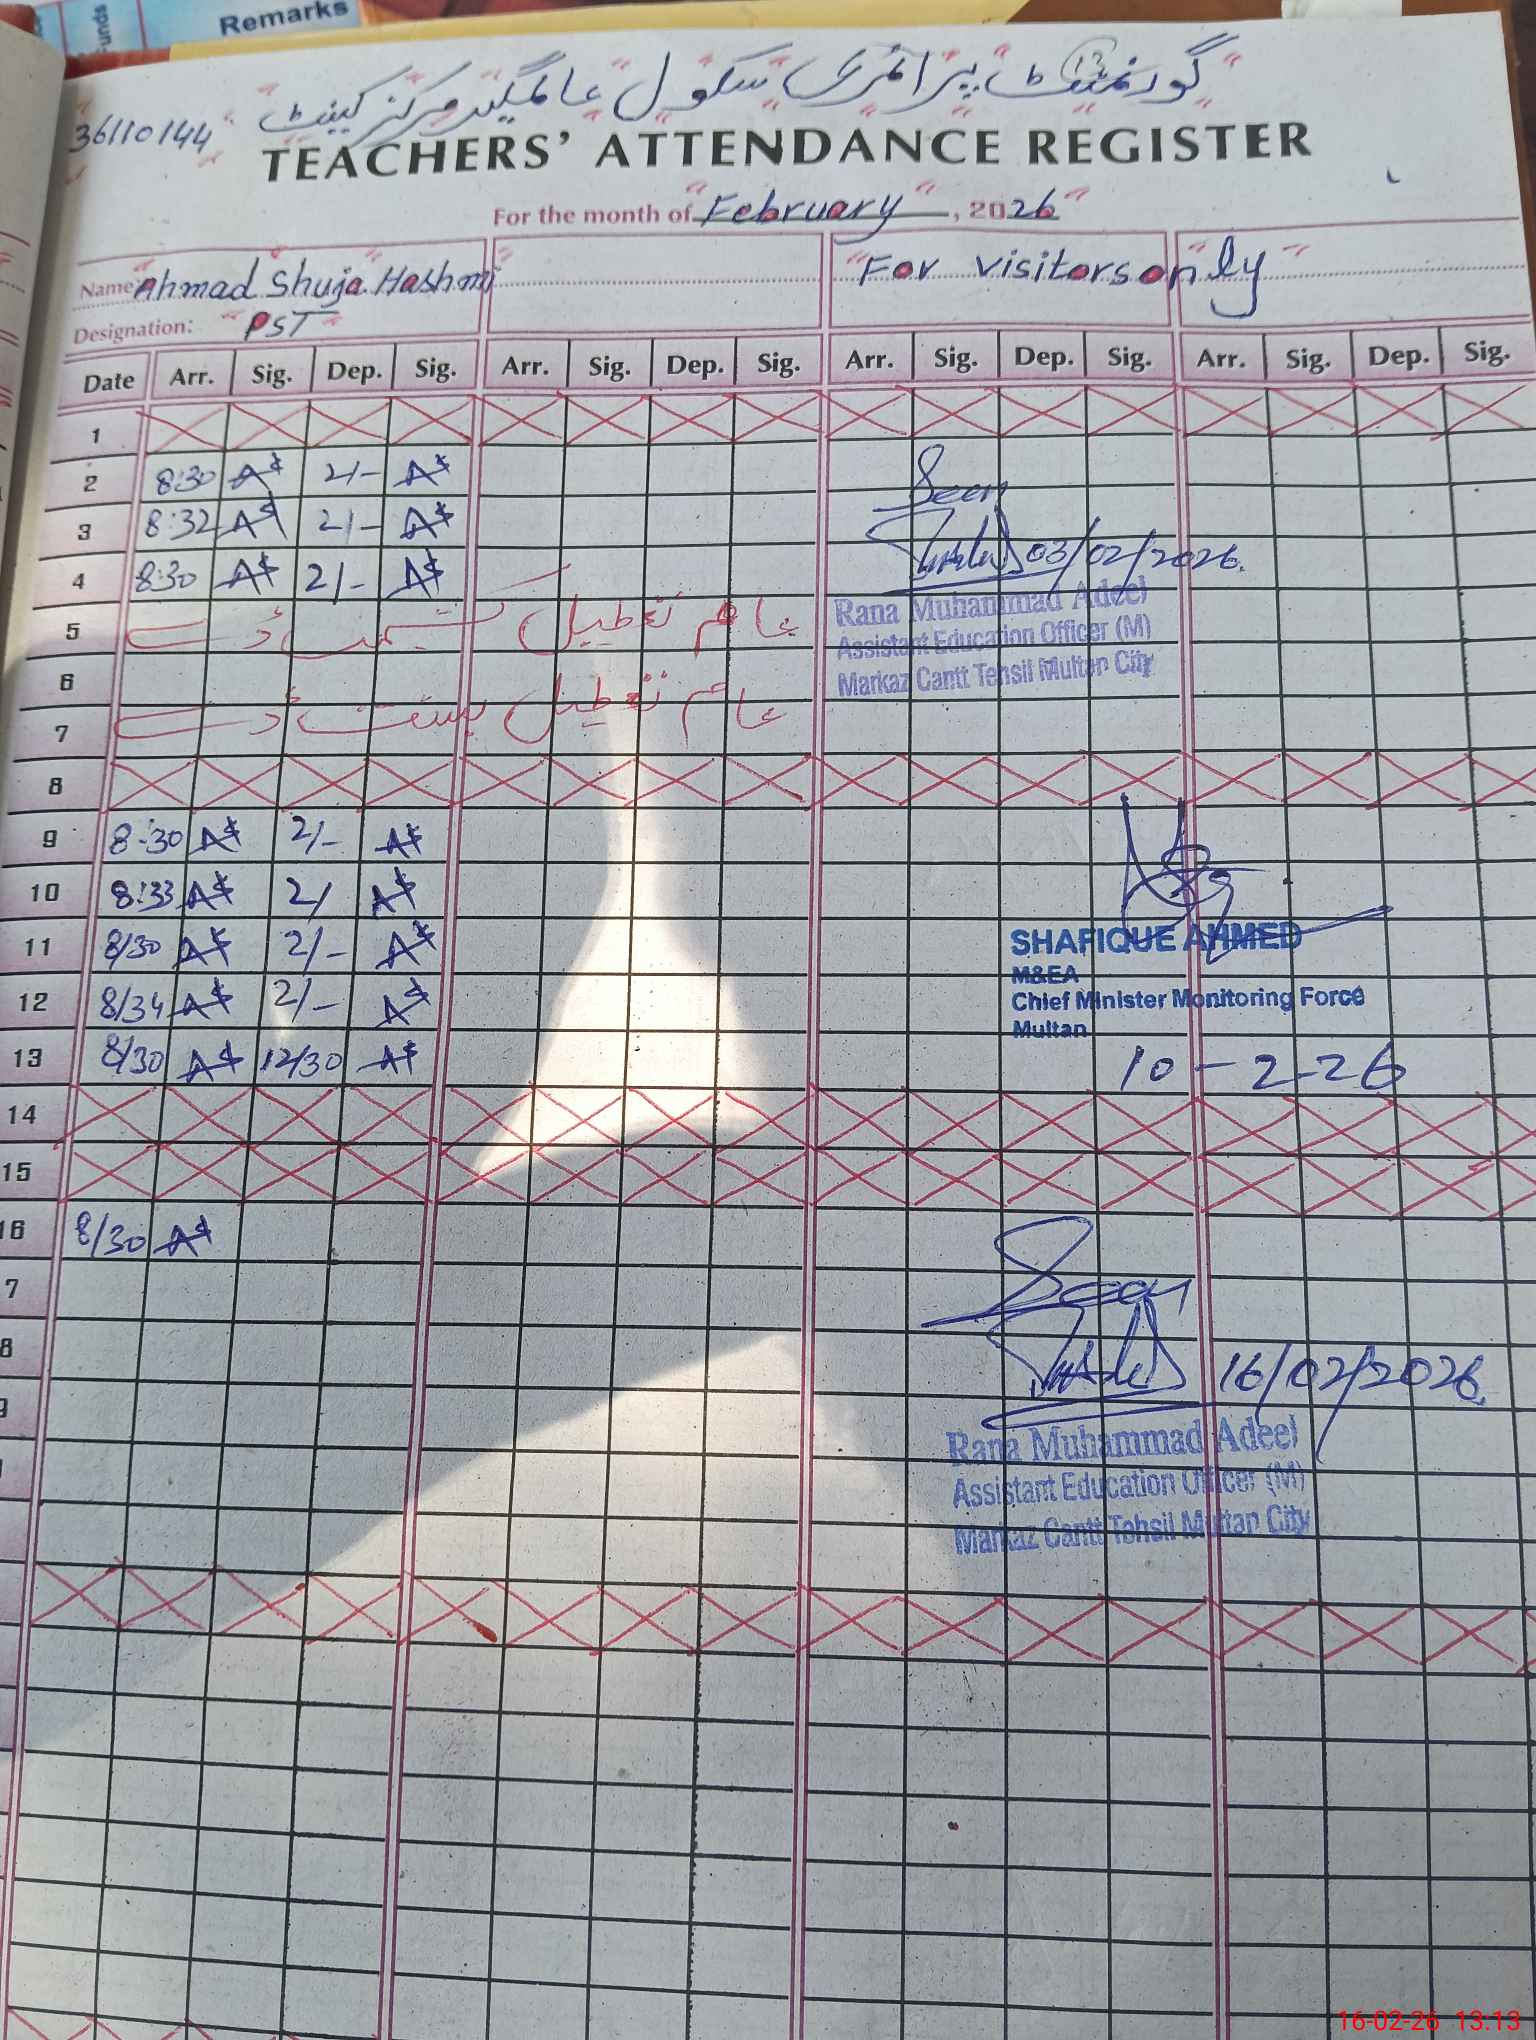 Remarks
unds
گورنمنٹ پرائمری سکول عالمگیر مرکز کینٹ
13
36110144
TEACHERS' ATTENDANCE REGISTER
For the month of February, 2026
Name Ahmad Shuja Hashmi
For visitors only
Designation: PST
Date Arr. Sig. Dep. Sig. Arr. Sig. Dep. Sig. Arr. Sig. Dep. Sig. Arr. Sig. Dep. Sig.
1
2 8:30 2/-
Seen
3 8:32 2/-
03/02/2026.
4 8:30 2/-
Rana Muhammad Adeel
5 عام تعطیل کشمیر ڈے
Assistant Education Officer (M)
Markaz Cantt Tehsil Multan City
6
عام تعطیل بسنت ڈے
7
8
9 8:30 2/-
10 8:33 2/
11 8/30 2/-
SHAFIQUE AHMED
M&EA
12 8/34 2/-
Chief Minister Monitoring Force
Multan
13 8/30 12/30
10-2-26
14
15
16 8/30
Seen
7
8
16/02/2026.
9
Rana Muhammad Adeel
Assistant Education Officer (M)
Markaz Cantt Tehsil Multan City
16-02-26 13:13